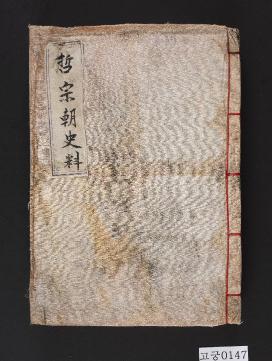 哲宗朝史料
고궁0147